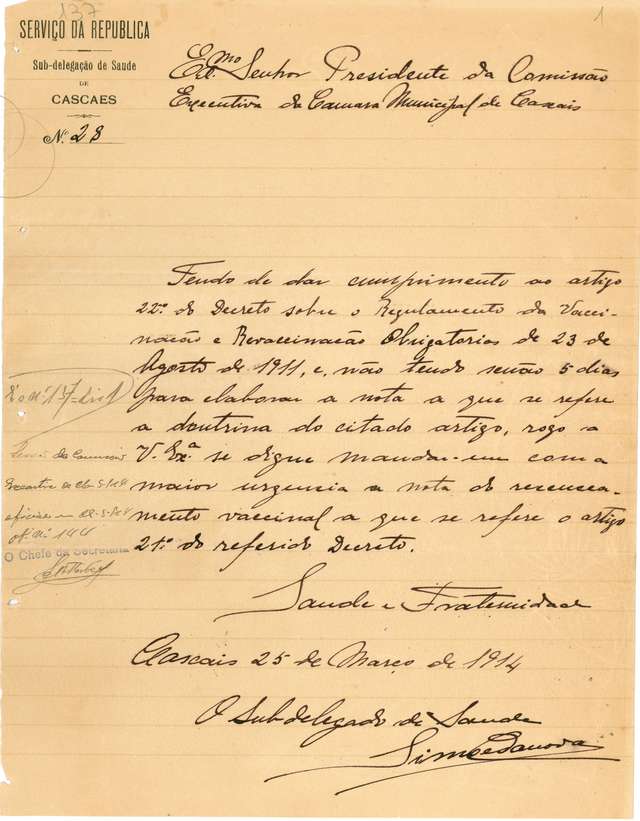 137
1
SERVIÇO DA REPUBLICA
Sub-delegação de Saude
DE
CASCAES
N.º 28
Ex.mo Senhor Presidente da Comissão
Executiva da Camara Municipal de Cascais
Tendo de dar cumprimento ao artigo
22º do Decreto sobre o Regulamento da Vacci-
nação e Revaccinação Obrigatorias de 23 de
Agosto de 1911, e, não tendo senão 5 dias
para elaborar a nota a que se refere
a doutrina do citado artigo, rogo a
V. Ex.ª se digne mandar-me com a
maior urgencia a nota do recensea-
mento vaccinal a que se refere o artigo
21º do referido Decreto.
Saude e Fraternidade
Cascais 25 de Março de 1914
O Subdelegado de Saude
nº 137
Sessão da Comissão
Executiva de
of. nº 144
O Chefe da Secretaria